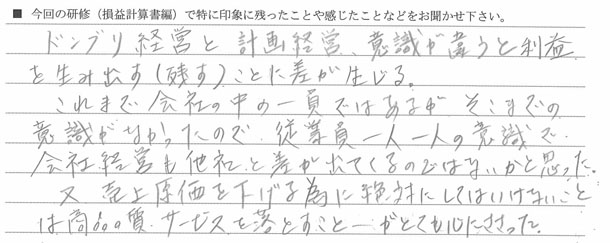 ■ 今回の研修（損益計算書編）で特に印象に残ったことや感じたことなどをお聞かせ下さい。
ドンブリ経営と計画経営、意識が違うと利益
を生み出す（残す）ことに差が生じる。
これまで会社の中の一員ではあるが そこまでの
意識がなかったので、従業員一人一人の意識で、
会社経営も他社と差が出てくるのではないかと思った。
又、売上原価を下げる為に絶対にしてはいけないこと
は商品の質、サービスを落とすこと―がとても心にささった。